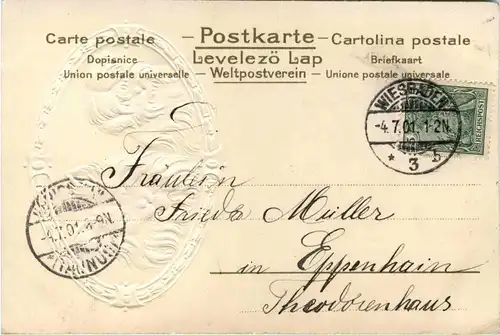 Carte postale – Postkarte – Cartolina postale
Dopisnice Levelezö Lap Briefkaart
Union postale universelle – Weltpostverein – Unione postale universale
WIESBADEN
-4.7.01. 1-2N.
* 3 b
REICHSPOST
Fräulein
Frieda Müller
in
Eppenhain
Theodorenhaus
4.7.01.
(TAUNUS)